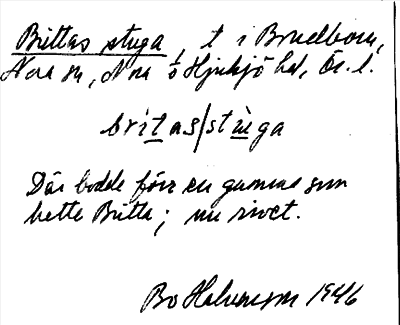 Brittas stuga, t i Brudbom,
Nora sn, Nora o Hjulsjö hd, Ör. l.
britas/stùga
Där bodde förr en gumma som
hette Britta; nu rivet.
Bo 1946